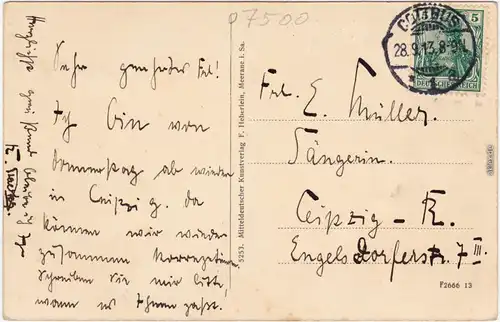 07500
Sehr geehrtes Frl!
Ich bin von
Donnerstag ab wieder
in Leipzig. da
können wir wieder
zusammen korrepetieren.
Schreiben Sie mir bitte,
wann es Ihnen paßt.
Herzlichst
bleibe ich Ihr
5253. Mitteldeutscher Kunstverlag F. Heberlein, Meerane i. Sa.
COTTBUS
28.9.13.8-9V.
5
DEUTSCHES REICH
Frl. E. Müller.
Sängerin.
Leipzig-R.
Engelsdorferstr. 7 III.
F2666 13